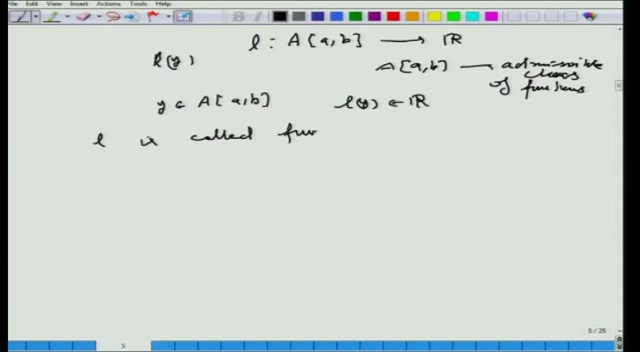 File Edit View Insert Actions Tools Help
l : A[a,b] → ℝ
l(y)
A[a,b] — admissible
class
of functions
y ∈ A[a,b] l(y) ∈ ℝ
l is called fun
5 / 25
5